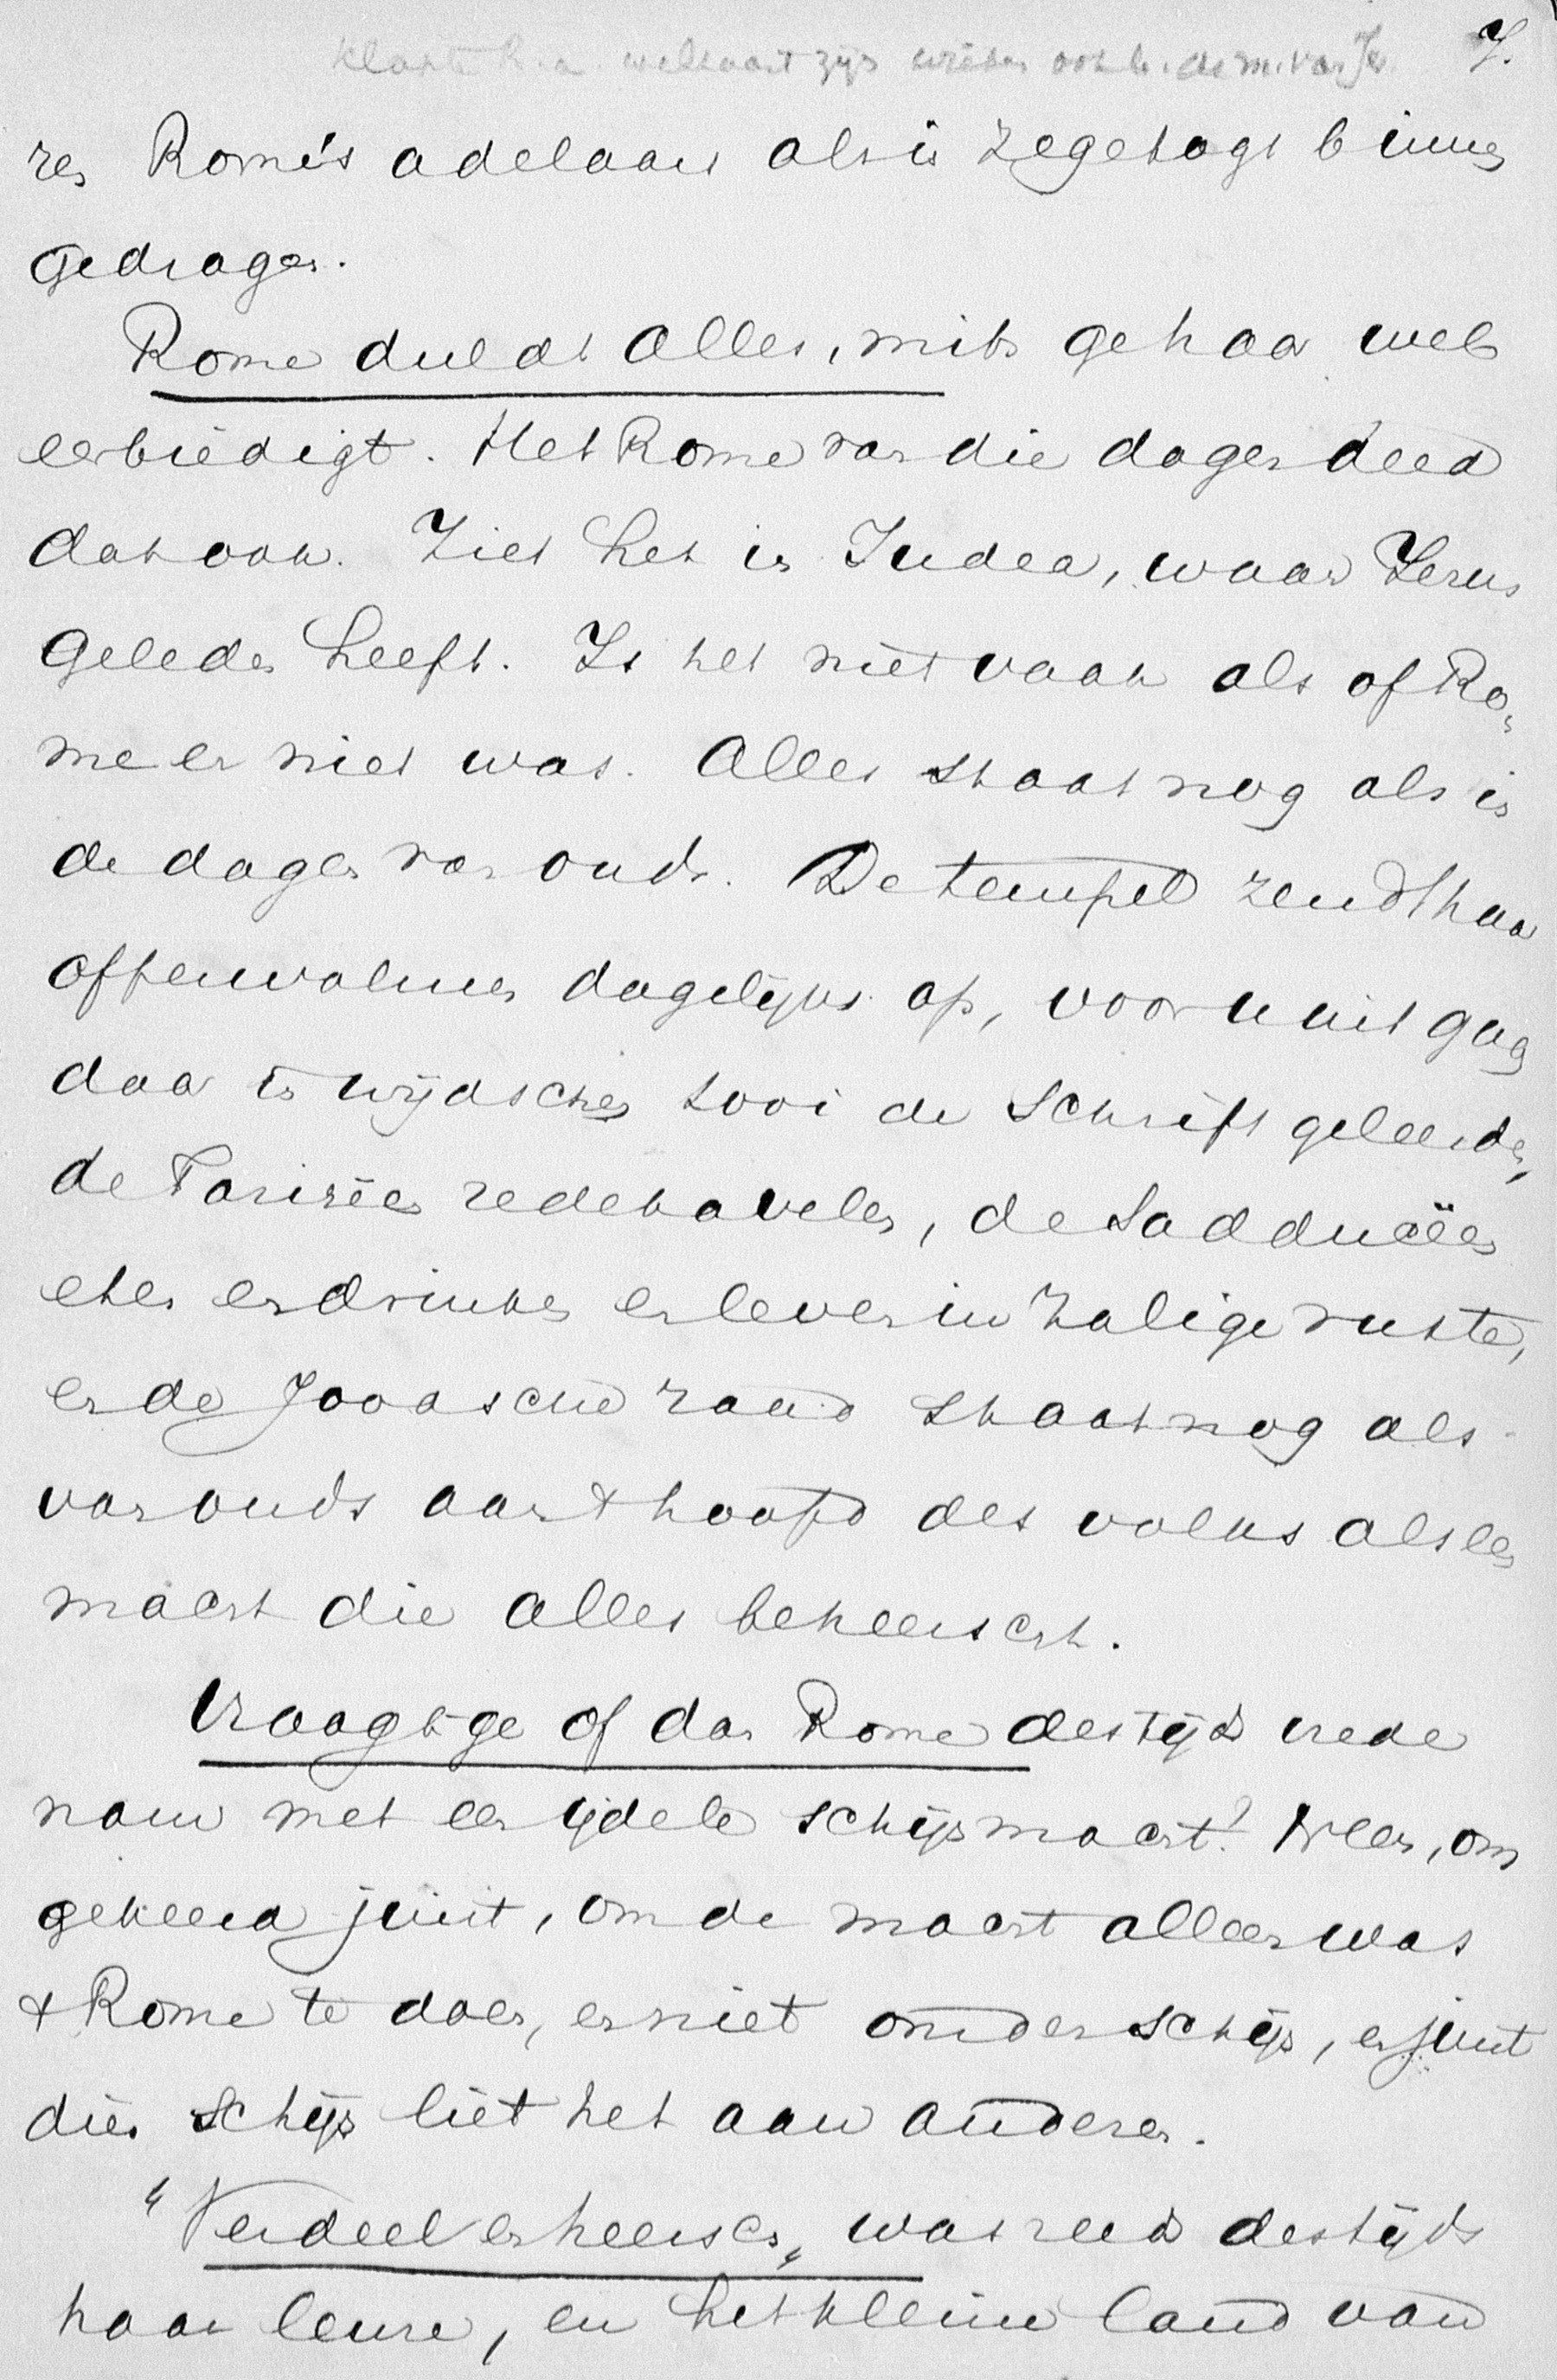 7.
ren Rome's adelaars als in zegetogt binnen
gedragen.
Rome duldt alles, mits ge haar wet
eerbiedigt. Het Rome van die dagen deed
dat ook. Ziet het in Judea, waar Jezus
geleden heeft. Is het niet vaak als of Ro-
me er niet was. Alles staat nog als in
de dagen van ouds. De tempel zendt haar
offerwalmen dagelijks op, vooruit gang
daar in wijdschen tooi de Schriftgeleerden,
de Farizeën redekavelen, de Sadduceën
eten en drinken en leven in zalige ruste,
en de Joodsche raad staat nog als
van ouds aan 't hoofd des volks als een
macht die alles beheerscht.
Vraagt ge of dan Rome destijds vrede
nam met een ijdele schijnmacht? Neen, om
gekeerd juist, om de macht alleen was
't Rome te doen, en niet om den schijn, en juist
dien schijn liet het aan anderen.
"Verdeel en heersch" was reeds destijds
haar leuze, en het kleine land van